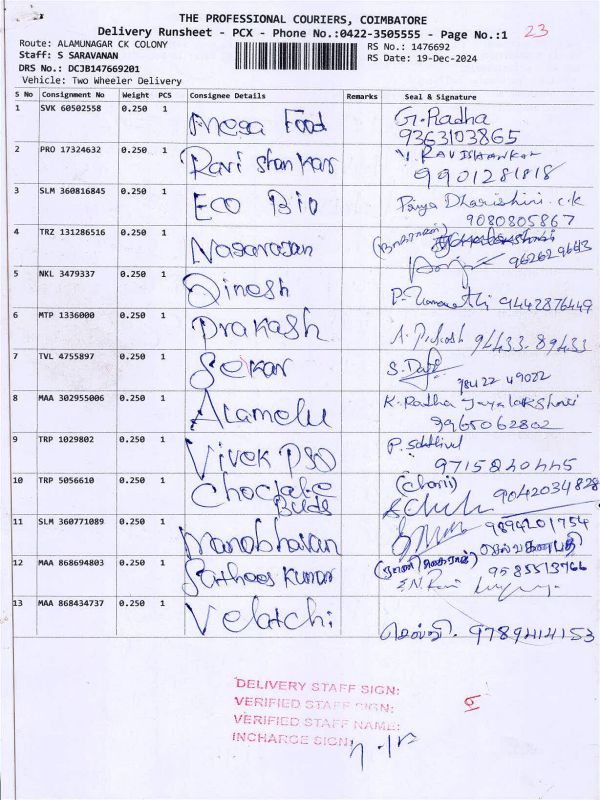 THE PROFESSIONAL COURIERS, COIMBATORE
Delivery Runsheet - PCX - Phone No.:0422-3505555 - Page No.:1 23
Route: ALAMUNAGAR CK COLONY
Staff: S SARAVANAN
DRS No.: DCJB147669201
Vehicle: Two Wheeler Delivery
RS No.: 1476692
RS Date: 19-Dec-2024
S No Consignment No Weight PCS Consignee Details Remarks Seal & Signature
1 SVK 60502558 0.250 1 Mega Food G. Radha
9363103865
2 PRO 17324632 0.250 1 Ravi Shankar V. RAVISHANKAR
9901281818
3 SLM 360816845 0.250 1 Eco Bio Priya Dharishini C.K
9080805867
4 TRZ 131286516 0.250 1 Nagarasan
9626296643
5 NKL 3479337 0.250 1 Dinesh 9442876449
6 MTP 1336000 0.250 1 Prakash 94433-89433
7 TVL 4755897 0.250 1 Sekar
78422 49022
8 MAA 302955006 0.250 1 Alamelu K. Radha Jayalakshmi
9965062802
9 TRP 1029802 0.250 1 Vivek PSO
9715820445
10 TRP 5056610 0.250 1 Choclate
Buds 9042034828
11 SLM 360771089 0.250 1 Manobharan 9894201754
செல்வகணபதி
12 MAA 868694803 0.250 1 Sathees Kumar 9585513766
13 MAA 868434737 0.250 1 Velatchi
9789414153
DELIVERY STAFF SIGN:
VERIFIED STAFF SIGN:
VERIFIED STAFF NAME:
INCHARGE SIGN: